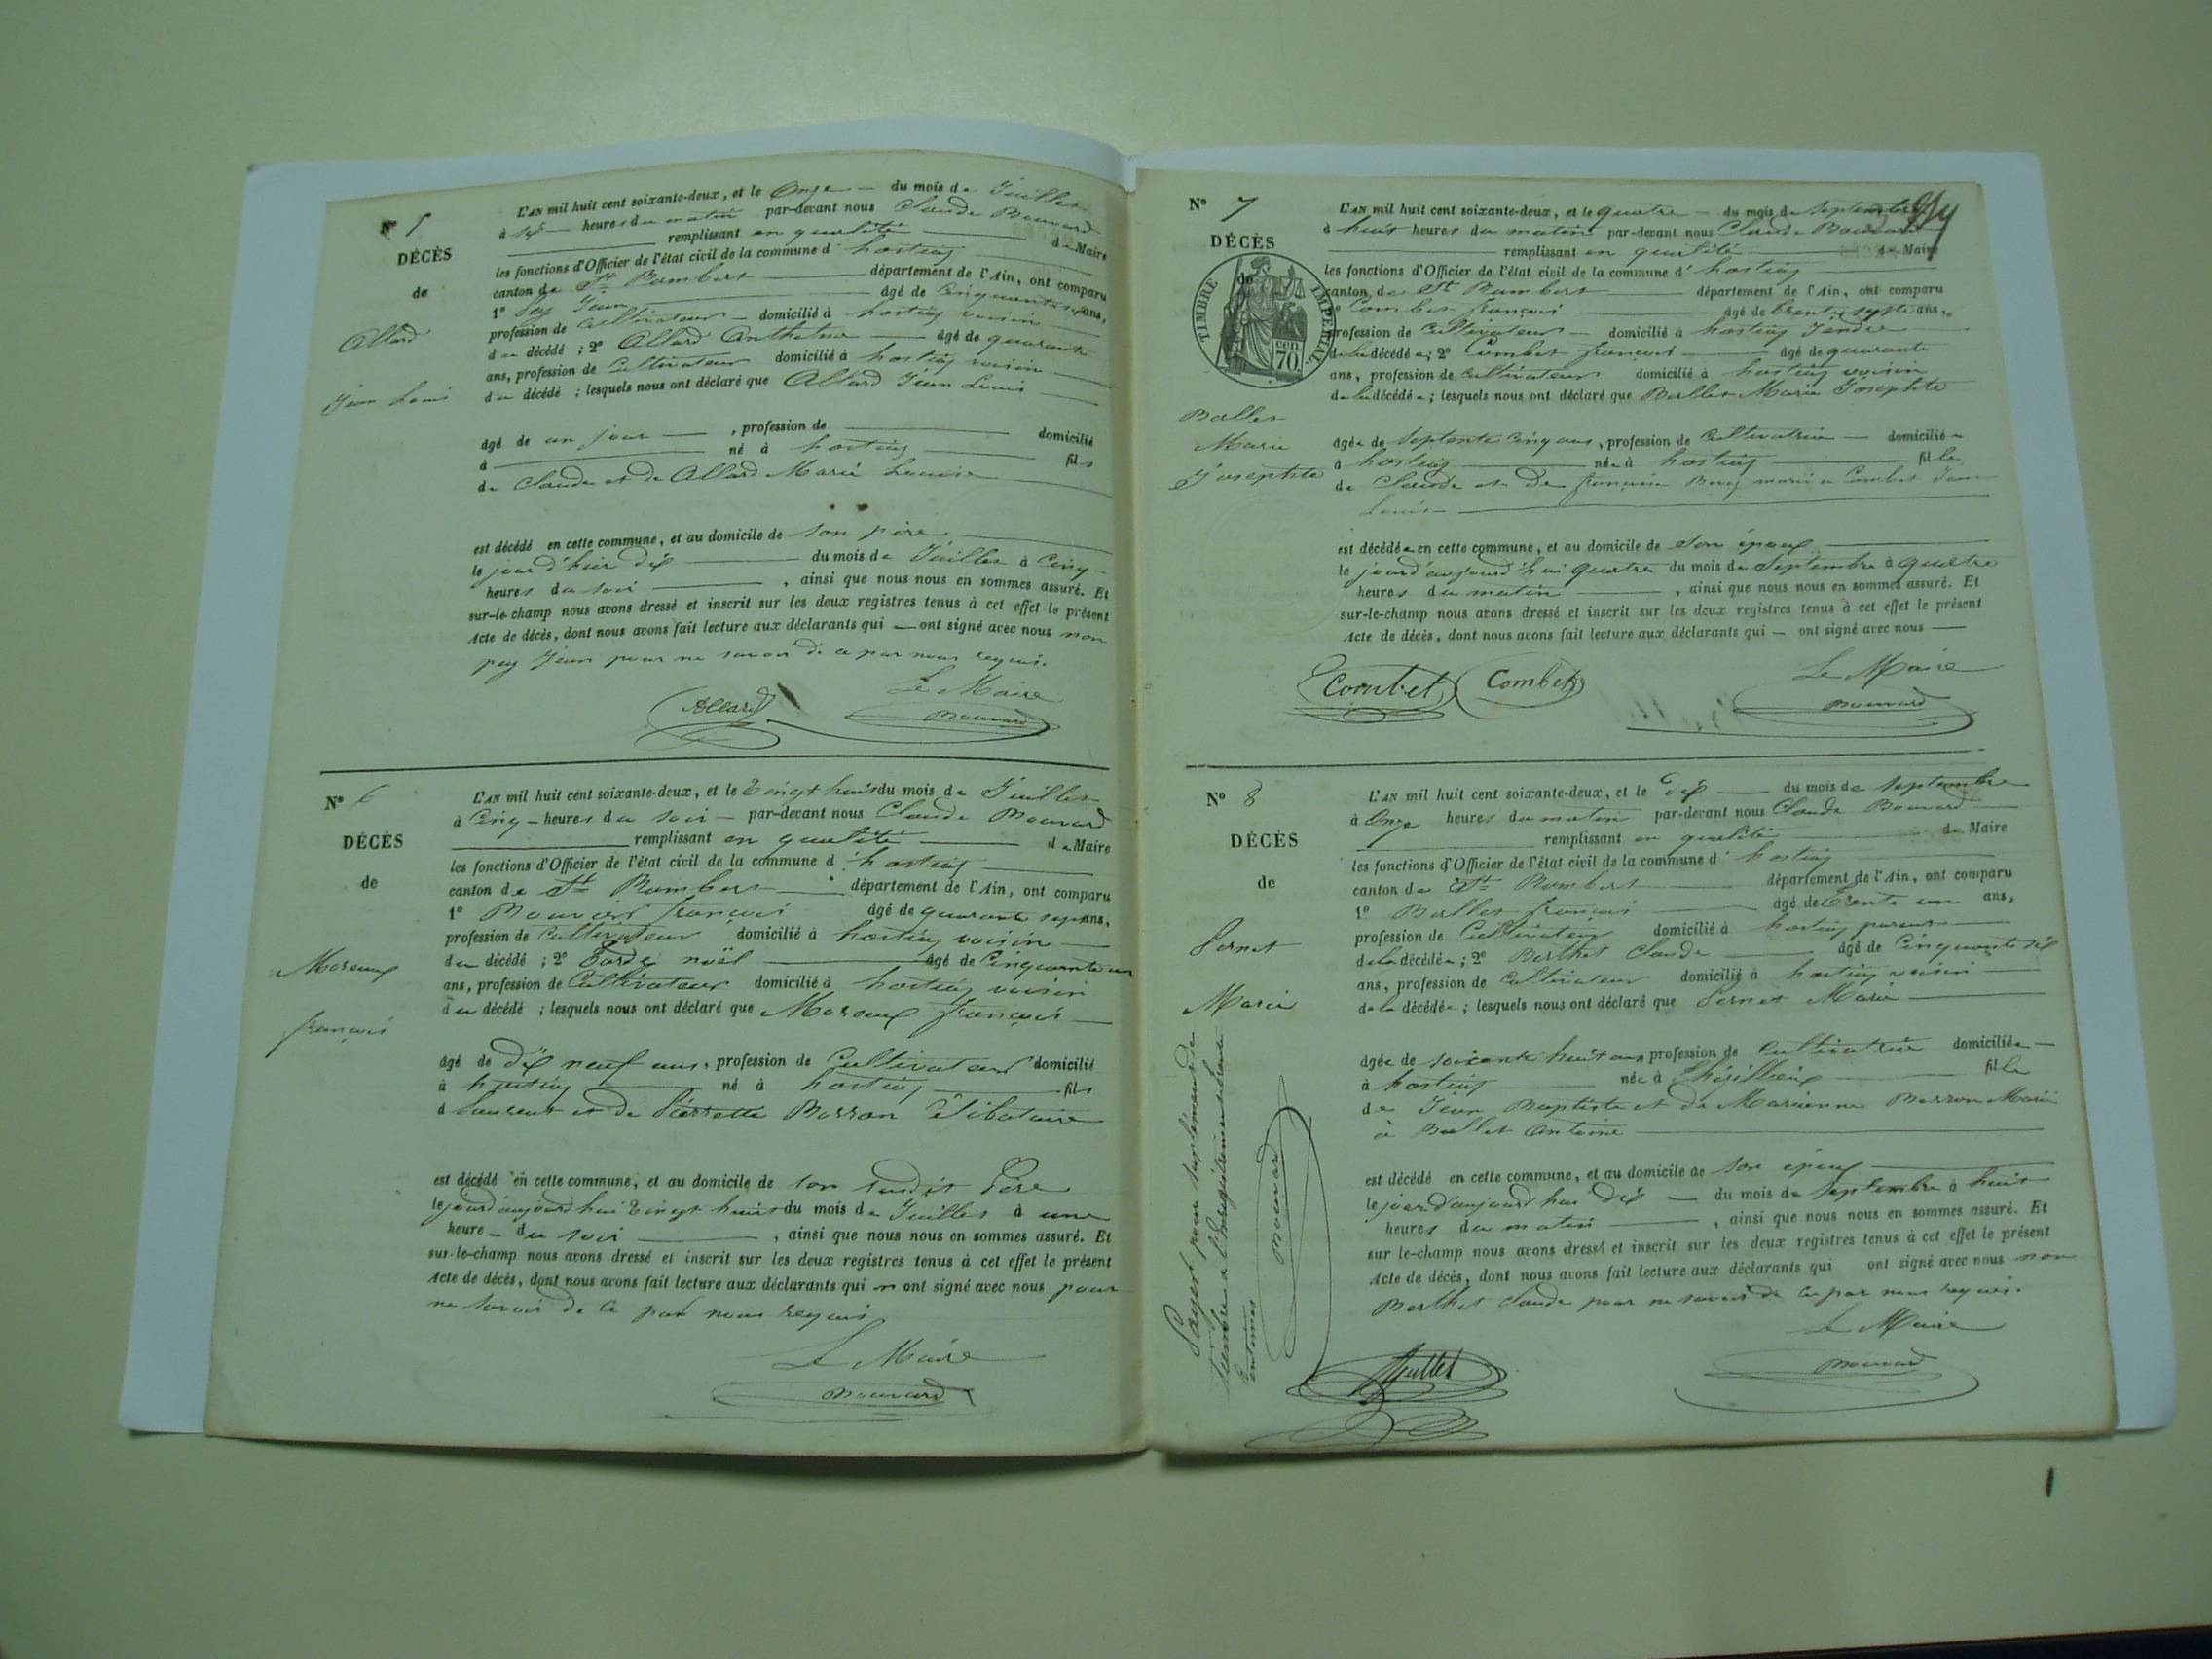 N° 5
DÉCÈS
de
Allard
Jean Louis
L'AN mil huit cent soixante-deux, et le Onze du mois de Juillet
à sept heures du matin par-devant nous Claude Bouvard
remplissant en qualité de Maire
les fonctions d'Officier de l'état civil de la commune d' hostiaz
canton de St Rambert département de l'Ain, ont comparu
1° Pey Jean âgé de Cinquante ans,
profession de Cultivateur domicilié à hostiaz voisin
du décédé ; 2° Allard Anthelme âgé de quarante
ans, profession de Cultivateur domicilié à hostiaz voisin
du décédé ; lesquels nous ont déclaré que Allard Jean Louis
âgé de un jour , profession de domicilié
à né à hostiaz fils
de Claude et de Allard Marie Louise
est décédé en cette commune, et au domicile de son père
le jour d'hier dix du mois de Juillet à Cinq
heures du soir , ainsi que nous nous en sommes assuré. Et
sur-le-champ nous avons dressé et inscrit sur les deux registres tenus à cet effet le présent
Acte de décès, dont nous avons fait lecture aux déclarants qui ont signé avec nous non
pey Jean pour ne savoir de ce par nous requis.
Le Maire
Allard Bouvard
N° 6
DÉCÈS
de
Moreux
françois
L'AN mil huit cent soixante-deux, et le Vingt huit du mois de Juillet
à Cinq heures du soir par-devant nous Claude Bouvard
remplissant en qualité de Maire
les fonctions d'Officier de l'état civil de la commune d' hostiaz
canton de St Rambert département de l'Ain, ont comparu
1° françois âgé de quarante sept ans,
profession de Cultivateur domicilié à hostiaz voisin
du décédé ; 2° Tardy noël âgé de Cinquante un
ans, profession de Cultivateur domicilié à hostiaz voisin
du décédé ; lesquels nous ont déclaré que Moreux françois
âgé de dix neuf ans, profession de Cultivateur domicilié
à hostiaz né à hostiaz fils
d Laurent et de Pierrette Borron Célibataire
est décédé en cette commune, et au domicile de son susdit Père
le jourd'aujourd'hui Vingt huit du mois de Juillet à une
heure du soir , ainsi que nous nous en sommes assuré. Et
sur-le-champ nous avons dressé et inscrit sur les deux registres tenus à cet effet le présent
Acte de décès, dont nous avons fait lecture aux déclarants qui n ont signé avec nous pour
ne savoir de ce par nous requis
Le Maire
Bouvard
N° 7
DÉCÈS
de
TIMBRE IMPÉRIAL
70 cen.
Ballet
Marie
Josephte
L'AN mil huit cent soixante-deux, et le quatre du mois de Septembre
à huit heures du matin par-devant nous Claude Bouvard
remplissant en qualité de Maire
les fonctions d'Officier de l'état civil de la commune d' hostiaz
canton de St Rambert département de l'Ain, ont comparu
1° Combet françois âgé de trente sept ans,
profession de Cultivateur domicilié à hostiaz Gendre
de la décédée ; 2° Combet françois âgé de quarante
ans, profession de Cultivateur domicilié à hostiaz voisin
de la décédée ; lesquels nous ont déclaré que Ballet Marie Josephte
âgée de Septante Cinq ans, profession de Cultivatrice domiciliée
à hostiaz née à hostiaz fille
de Claude et De françoise mariée à Combet Jean
Louis
est décédée en cette commune, et au domicile de son époux
le jourd'aujourd'hui quatre du mois de Septembre à quatre
heures du matin , ainsi que nous nous en sommes assuré. Et
sur-le-champ nous avons dressé et inscrit sur les deux registres tenus à cet effet le présent
Acte de décès, dont nous avons fait lecture aux déclarants qui ont signé avec nous
Le Maire
Combet Combet Bouvard
N° 8
DÉCÈS
de
Pernet
Marie
L'AN mil huit cent soixante-deux, et le dix du mois de Septembre
à Onze heures du matin par-devant nous Claude Bouvard
remplissant en qualité de Maire
les fonctions d'Officier de l'état civil de la commune d' hostiaz
canton de St Rambert département de l'Ain, ont comparu
1° Ballet françois âgé de trente un ans,
profession de Cultivateur domicilié à hostiaz parent
de la décédée ; 2° Berthet Claude âgé de Cinquante six
ans, profession de Cultivateur domicilié à hostiaz voisin
de la décédée ; lesquels nous ont déclaré que Pernet Marie
âgée de soixante huit ans, profession de Cultivatrice domiciliée
à hostiaz née à Thézillieu fille
de Jean Baptiste et de Marianne Borron Marié
à Ballet Antoine
est décédé en cette commune, et au domicile de son époux
le jourd'aujourd'hui dix du mois de Septembre à huit
heures du matin , ainsi que nous nous en sommes assuré. Et
sur le-champ nous avons dressé et inscrit sur les deux registres tenus à cet effet le présent
Acte de décès, dont nous avons fait lecture aux déclarants qui ont signé avec nous non
Berthet Claude pour ne savoir de ce par nous requis.
Le Maire
Ballet Bouvard
Bouvard